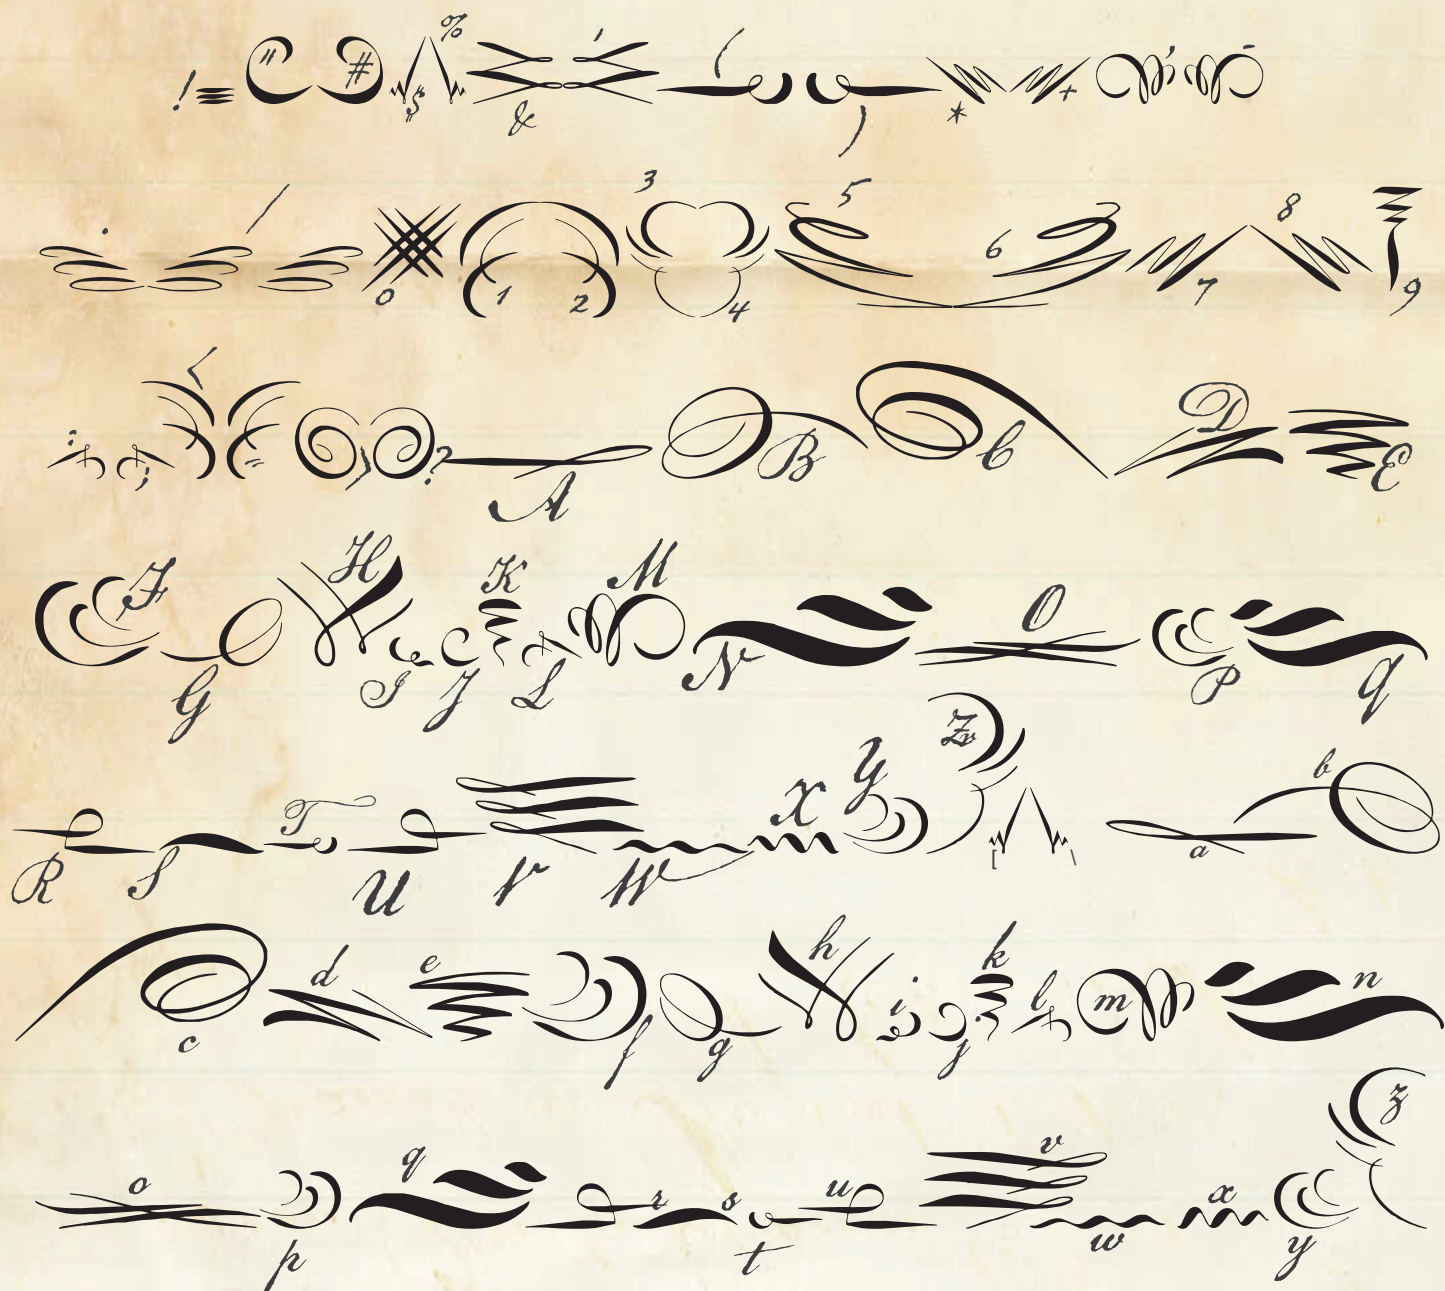 ! " # $ % & ' ( ) * + , -
. / 0 1 2 3 4 5 6 7 8 9
: ; < = > ? A B C D E
F G H I J K L M N O P Q
R S T U V W X Y Z [ \ a b
c d e f g h i j k l m n
o p q r s t u v w x y z